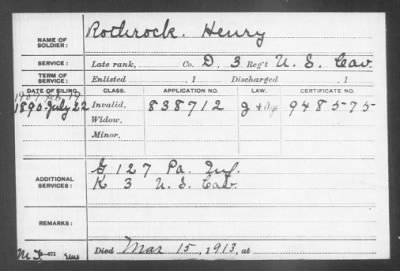 NAME OF SOLDIER: Rothrock. Henry
SERVICE: Late rank, Co. D. 3 Reg't U. S. Cav.
TERM OF SERVICE: Enlisted , 1 Discharged , 1
DATE OF FILING. CLASS. APPLICATION NO. LAW. CERTIFICATE NO.
1890 July 22 Invalid, 838712 948575
Widow,
Minor,
ADDITIONAL SERVICES: G 127 Pa. Inf.
K 3 U. S. Cav.
REMARKS:
Died Mar 15, 1913, at